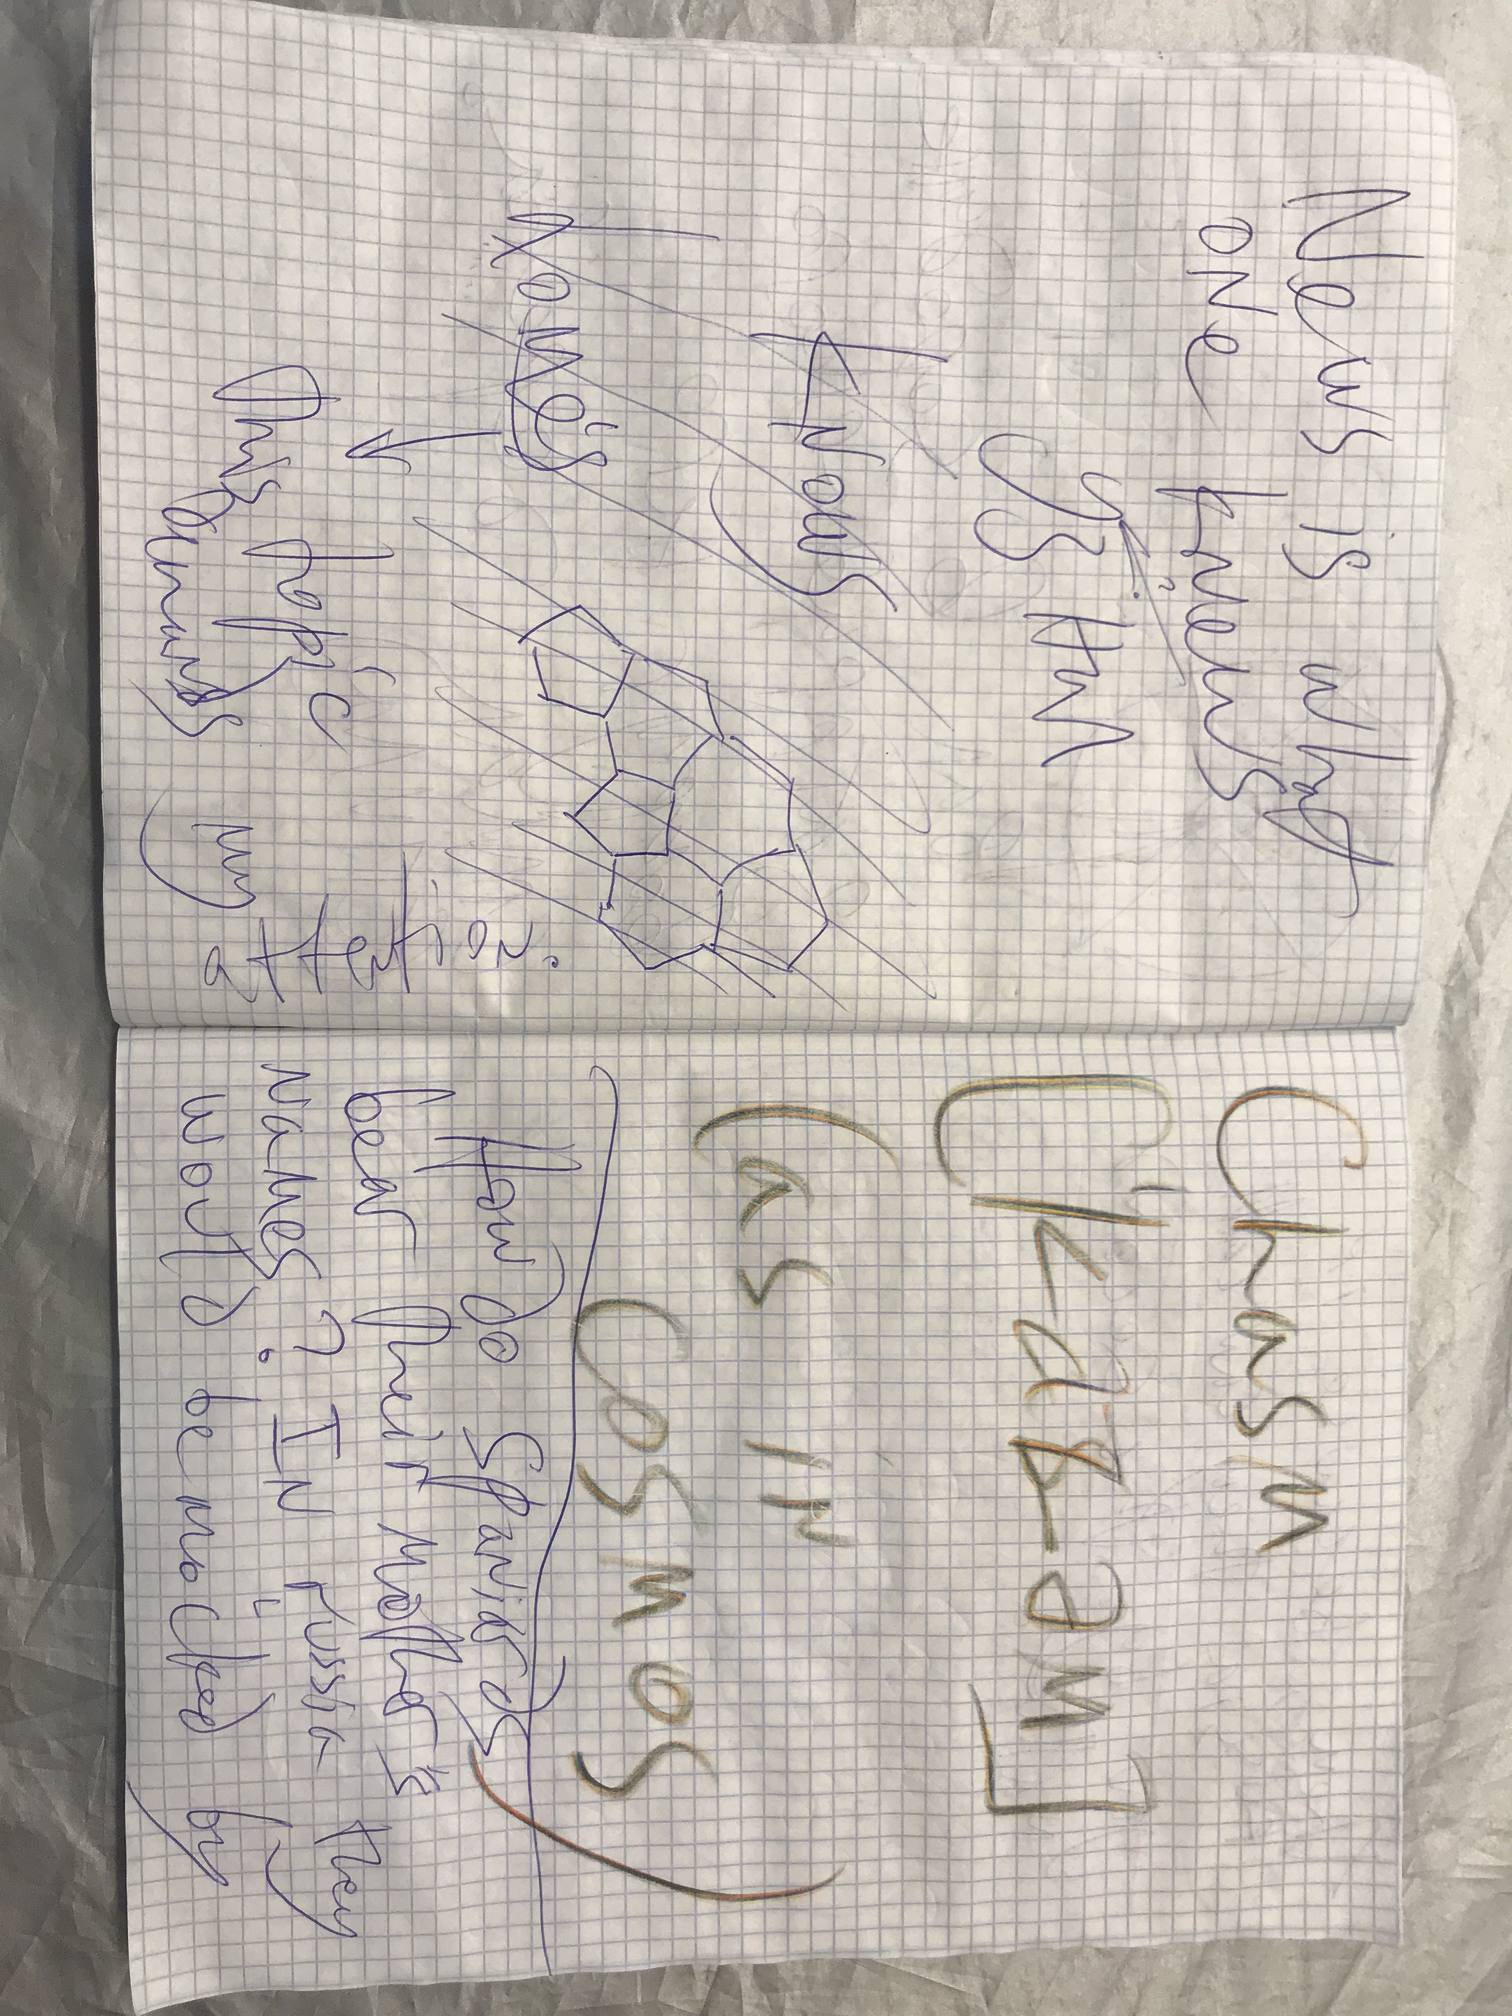 News is what
one knews
Knows
Xome's
This topic
demands my
Chasm
['kazəm]
(as in
cosmos)
How do Spaniards
bear their mother's
names? In russia they
would be mocked by